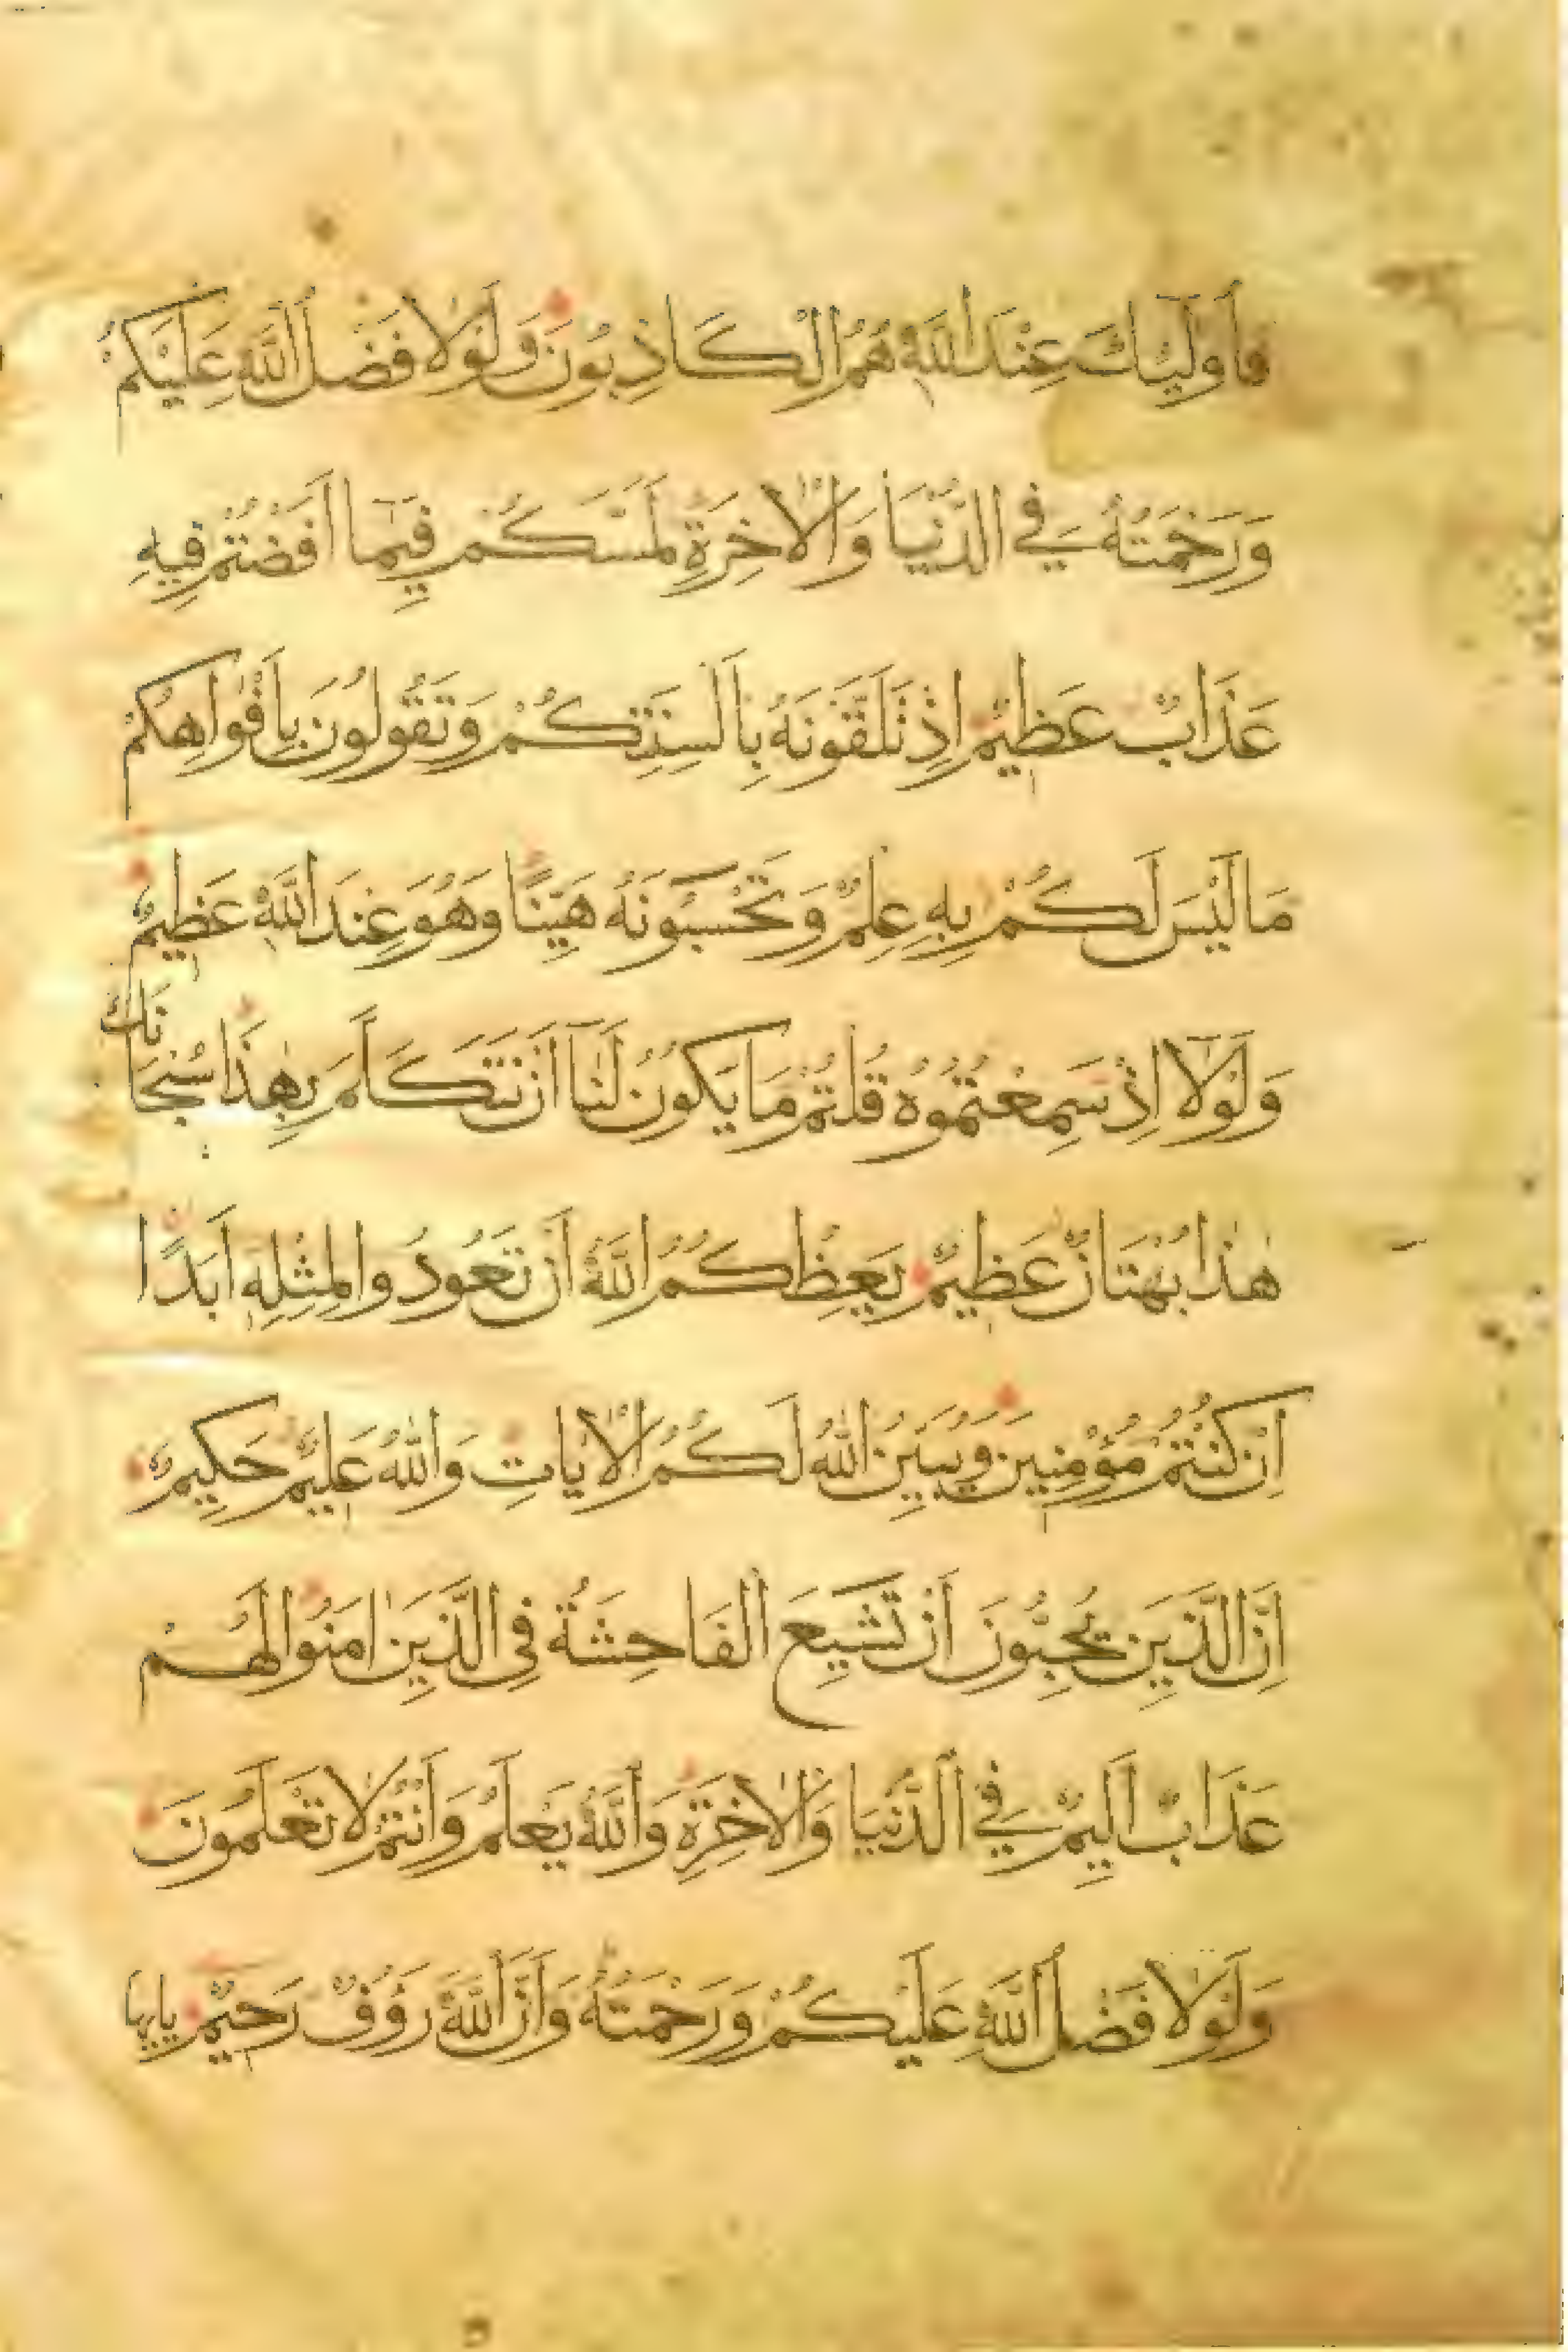 فَأُولَٰٓئِكَ عِنْدَ اللَّهِ هُمُ الْكَاذِبُونَ وَلَوْلَا فَضْلُ اللَّهِ عَلَيْكُمْ
وَرَحْمَتُهُ فِي الدُّنْيَا وَالْاٰخِرَةِ لَمَسَّكُمْ فِيمَآ اَفَضْتُمْ فِيهِ
عَذَابٌ عَظِيمٌ اِذْ تَلَقَّوْنَهُ بِاَلْسِنَتِكُمْ وَتَقُولُونَ بِاَفْوَاهِكُمْ
مَا لَيْسَ لَكُمْ بِهِ عِلْمٌ وَتَحْسَبُونَهُ هَيِّنًا وَهُوَ عِنْدَ اللَّهِ عَظِيمٌ
وَلَوْلَآ اِذْ سَمِعْتُمُوهُ قُلْتُمْ مَا يَكُونُ لَنَآ اَنْ نَتَكَلَّمَ بِهٰذَا سُبْحَانَكَ
هٰذَا بُهْتَانٌ عَظِيمٌ يَعِظُكُمُ اللَّهُ اَنْ تَعُودُوا لِمِثْلِهِ اَبَدًا
اِنْ كُنْتُمْ مُؤْمِنِينَ وَيُبَيِّنُ اللَّهُ لَكُمُ الْاٰيَاتِ وَاللَّهُ عَلِيمٌ حَكِيمٌ
اِنَّ الَّذِينَ يُحِبُّونَ اَنْ تَشِيعَ الْفَاحِشَةُ فِي الَّذِينَ اٰمَنُوا لَهُمْ
عَذَابٌ اَلِيمٌ فِي الدُّنْيَا وَالْاٰخِرَةِ وَاللَّهُ يَعْلَمُ وَاَنْتُمْ لَا تَعْلَمُونَ
وَلَوْلَا فَضْلُ اللَّهِ عَلَيْكُمْ وَرَحْمَتُهُ وَاَنَّ اللَّهَ رَؤُفٌ رَحِيمٌ يَايها